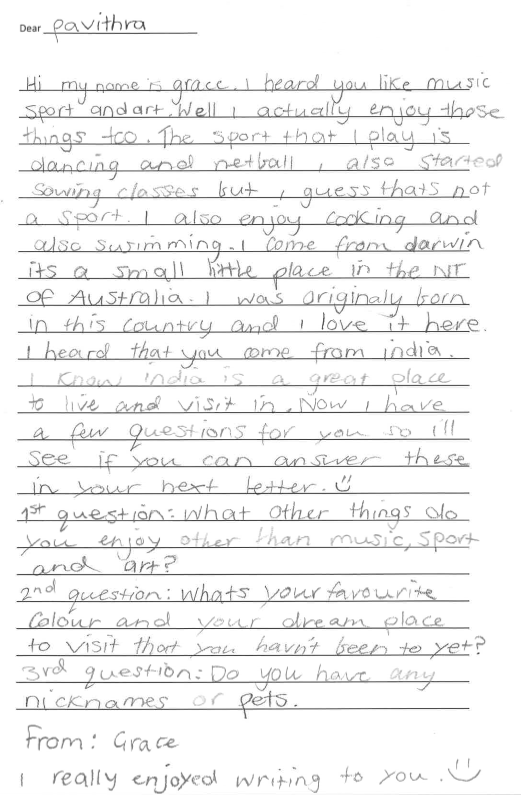 Dear pavithra
Hi my name is grace. I heard you like music
sport and art. Well i actually enjoy those
things too. The sport that I play is
dancing and netball i also started
sowing classes but i guess thats not
a sport. I also enjoy cooking and
also swimming. I come from darwin
its a small little place in the NT
of Australia. I was originaly born
in this country and i love it here.
I heard that you come from india.
I know india is a great place
to live and visit in. Now i have
a few questions for you so i'll
see if you can answer these
in your next letter.
1st question: What other things do
you enjoy other than music, sport
and art?
2nd question: Whats your favourite
colour and your dream place
to visit that you havn't been to yet?
3rd question: Do you have any
nicknames or pets.
From: Grace
I really enjoyed writing to you.